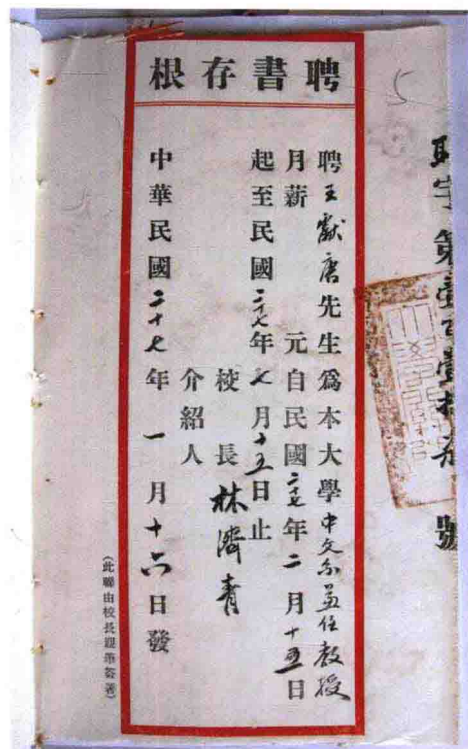 5
聘字第壹百壹拾號
聘書存根
聘王獻唐先生爲本大學中文系兼任教授
月薪 元自民國二十七年二月十五日
起至民國二十七年七月十五日止
校長林濟青
介紹人
中華民國二十七年一月十六日發
(此聯由校長親筆簽署)